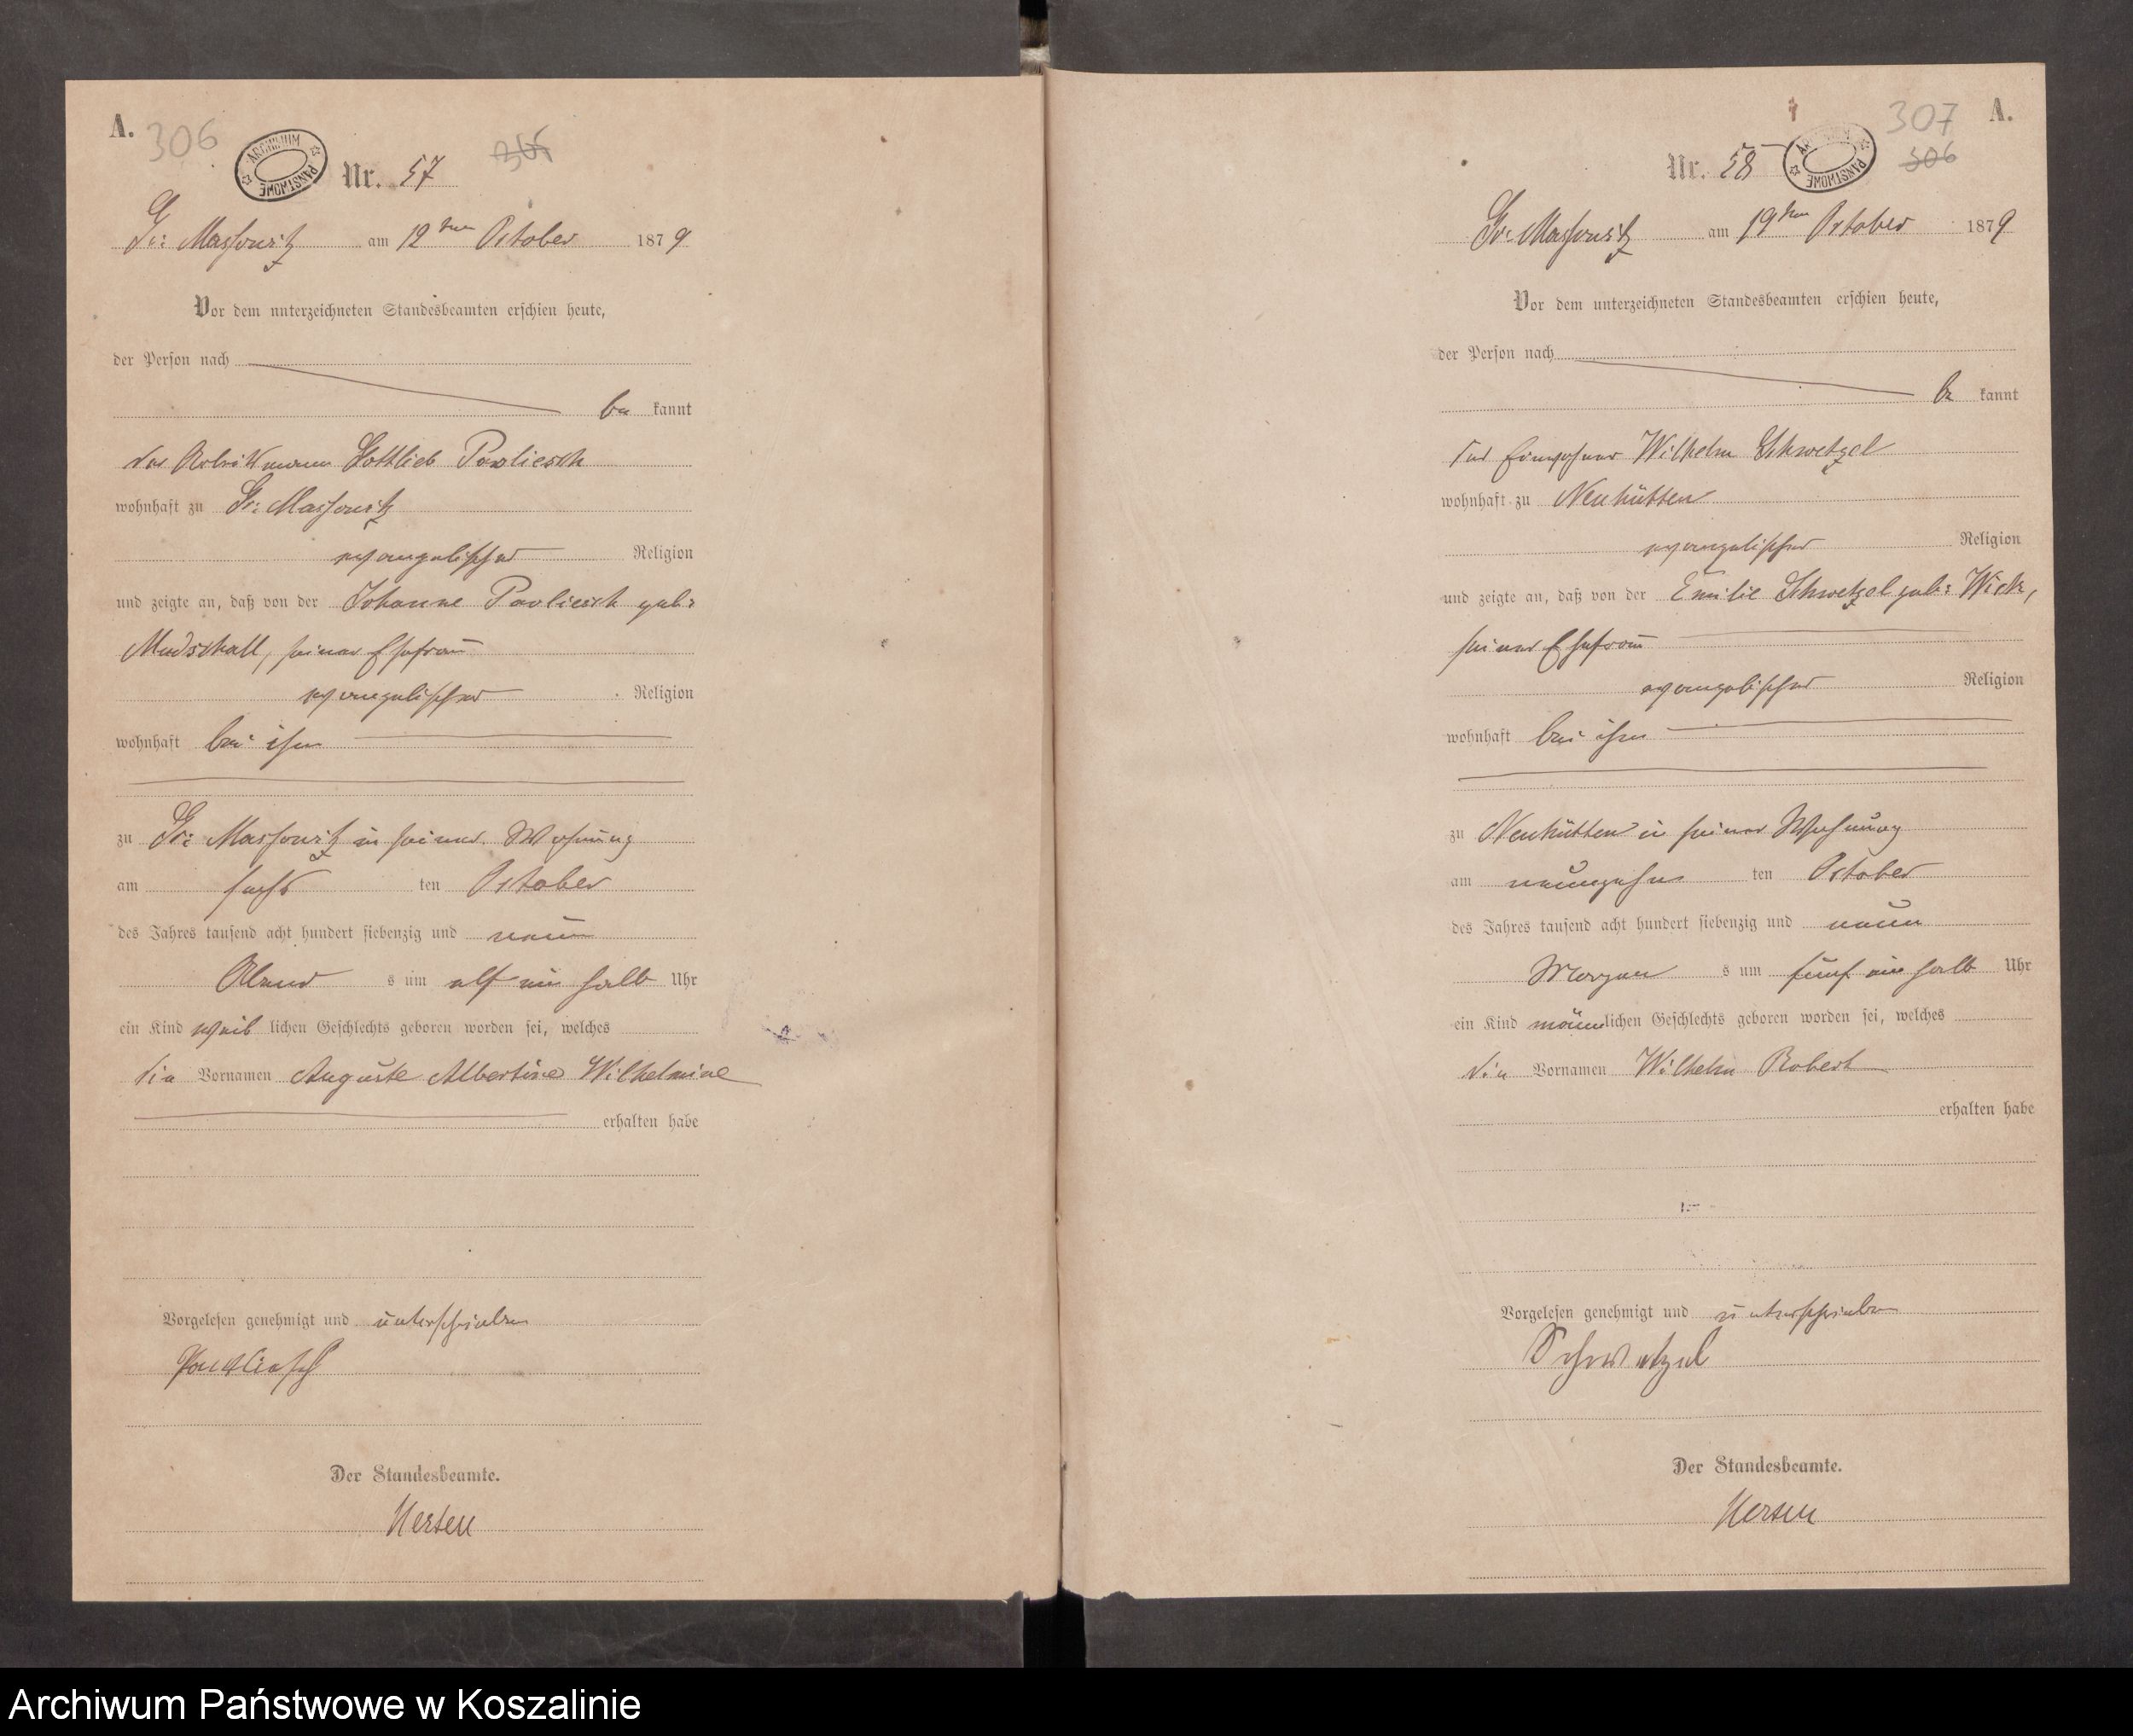 A. 306
ARCHIWUM PAŃSTWOWE
Nr. 57
Gr: Massowitz am 12ten October 1879
Vor dem unterzeichneten Standesbeamten erschien heute,
der Person nach
be kannt
der Arbeitsmann Gottlieb Pawliesch
wohnhaft zu Gr: Massowitz
evangelischer Religion
und zeigte an, daß von der Johanne Pawliesch geb:
Mudschall, seiner Ehefrau
evangelischer Religion
wohnhaft bei ihm
zu Gr: Massowitz in seiner Wohnung
am sechs ten October
des Jahres tausend acht hundert siebenzig und neun
Abend s um elf ein halb Uhr
ein Kind weib lichen Geschlechts geboren worden sei, welches
die Vornamen Auguste Albertine Wilhelmine
erhalten habe
Vorgelesen genehmigt und unterschrieben
Der Standesbeamte.
307 A.
306
Nr. 58
ARCHIWUM PAŃSTWOWE
Gr: Massowitz am 19ten October 1879
Vor dem unterzeichneten Standesbeamten erschien heute,
der Person nach
be kannt
der Einwohner Wilhelm Schwetzel
wohnhaft zu Neuhütten
evangelischer Religion
und zeigte an, daß von der Emilie Schwetzel geb: Wick,
seiner Ehefrau
evangelischer Religion
wohnhaft bei ihm
zu Neuhütten in seiner Wohnung
am neunzehn ten October
des Jahres tausend acht hundert siebenzig und neun
Morgen s um fünf ein halb Uhr
ein Kind männlichen Geschlechts geboren worden sei, welches
die Vornamen Wilhelm Robert
erhalten habe
Vorgelesen genehmigt und unterschrieben
Schwetzel
Der Standesbeamte.
Archiwum Państwowe w Koszalinie